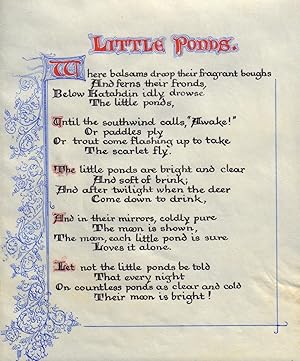 Little Ponds.
Where balsams droop their fragrant boughs
And ferns their fronds,
Below Katahdin idly drowse
The little ponds,
Until the southwind calls, "Awake!"
Or paddles ply
Or trout come flashing up to take
The scarlet fly.
The little ponds are bright and clear
And soft of brink;
And after twilight when the deer
Come down to drink,
And in their mirrors, coldly pure
The moon is shown,
The moon, each little pond is sure
Loves it alone.
Let not the little ponds be told
That every night
On countless ponds as clear and cold
Their moon is bright!